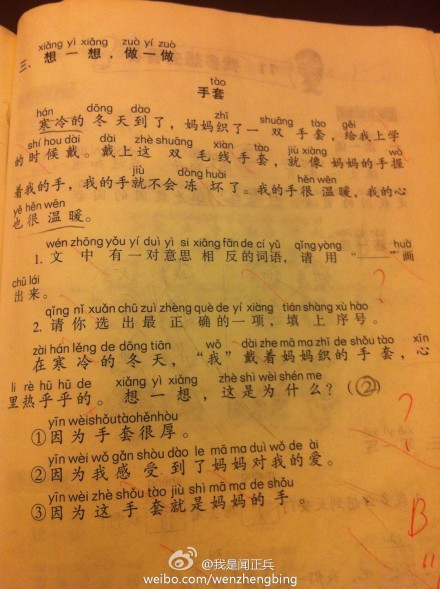 xiǎng yì xiǎng zuò yí zuò
三、想一想，做一做
tào
手套
hán dōng dào zhī shuāng tào gěi
寒冷的冬天到了，妈妈织了一双手套，给我上学
shí hou dài dài zhè shuāng xiàn tào jiù xiàng wò
的时候戴。戴上这双毛线手套，就像妈妈的手握
jiù dòng huài hěn wēn
着我的手，我的手就不会冻坏了。我的手很温暖，我的心
yě hěn wēn
也很温暖。
wén zhōng yǒu yí duì yì si xiāng fǎn de cí yǔ qǐng yòng huà
1. 文中有一对意思相反的词语，请用“——”画
chū lái
出来。
qǐng nǐ xuǎn chū zuì zhèng què de yí xiàng tián shàng xù hào
2. 请你选出最正确的一项，填上序号。
zài hán lěng de dōng tiān wǒ dài zhe mā ma zhī de shǒu tào xīn
在寒冷的冬天，“我”戴着妈妈织的手套，心
li rè hū hū de xiǎng yì xiǎng zhè shì wèi shén me
里热乎乎的。想一想，这是为什么？（②）
yīn wèi shǒu tào hěn hòu
①因为手套很厚。
yīn wèi wǒ gǎn shòu dào le mā ma duì wǒ de ài
②因为我感受到了妈妈对我的爱。
yīn wèi zhè shǒu tào jiù shì mā ma de shǒu
③因为这手套就是妈妈的手。
B
@我是闻正兵
weibo.com/wenzhengbing